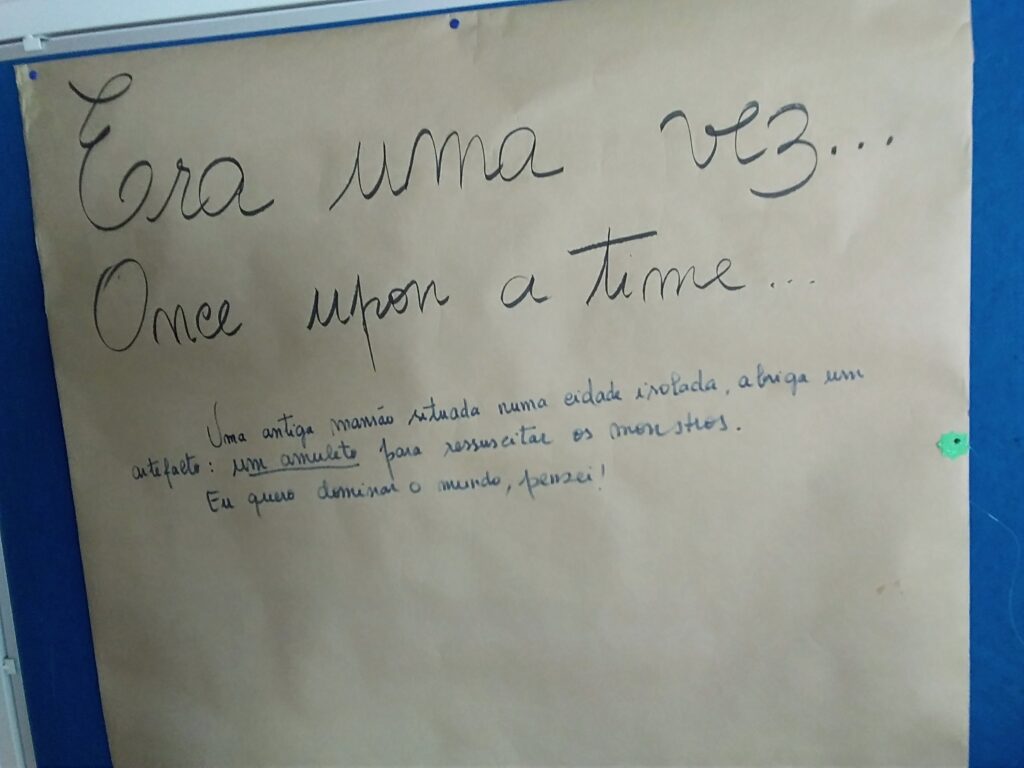 Era uma vez...
Once upon a time...
Uma antiga mansão situada numa cidade isolada, abriga um
artefacto: um amuleto para ressuscitar os monstros.
Eu quero dominar o mundo, pensei!